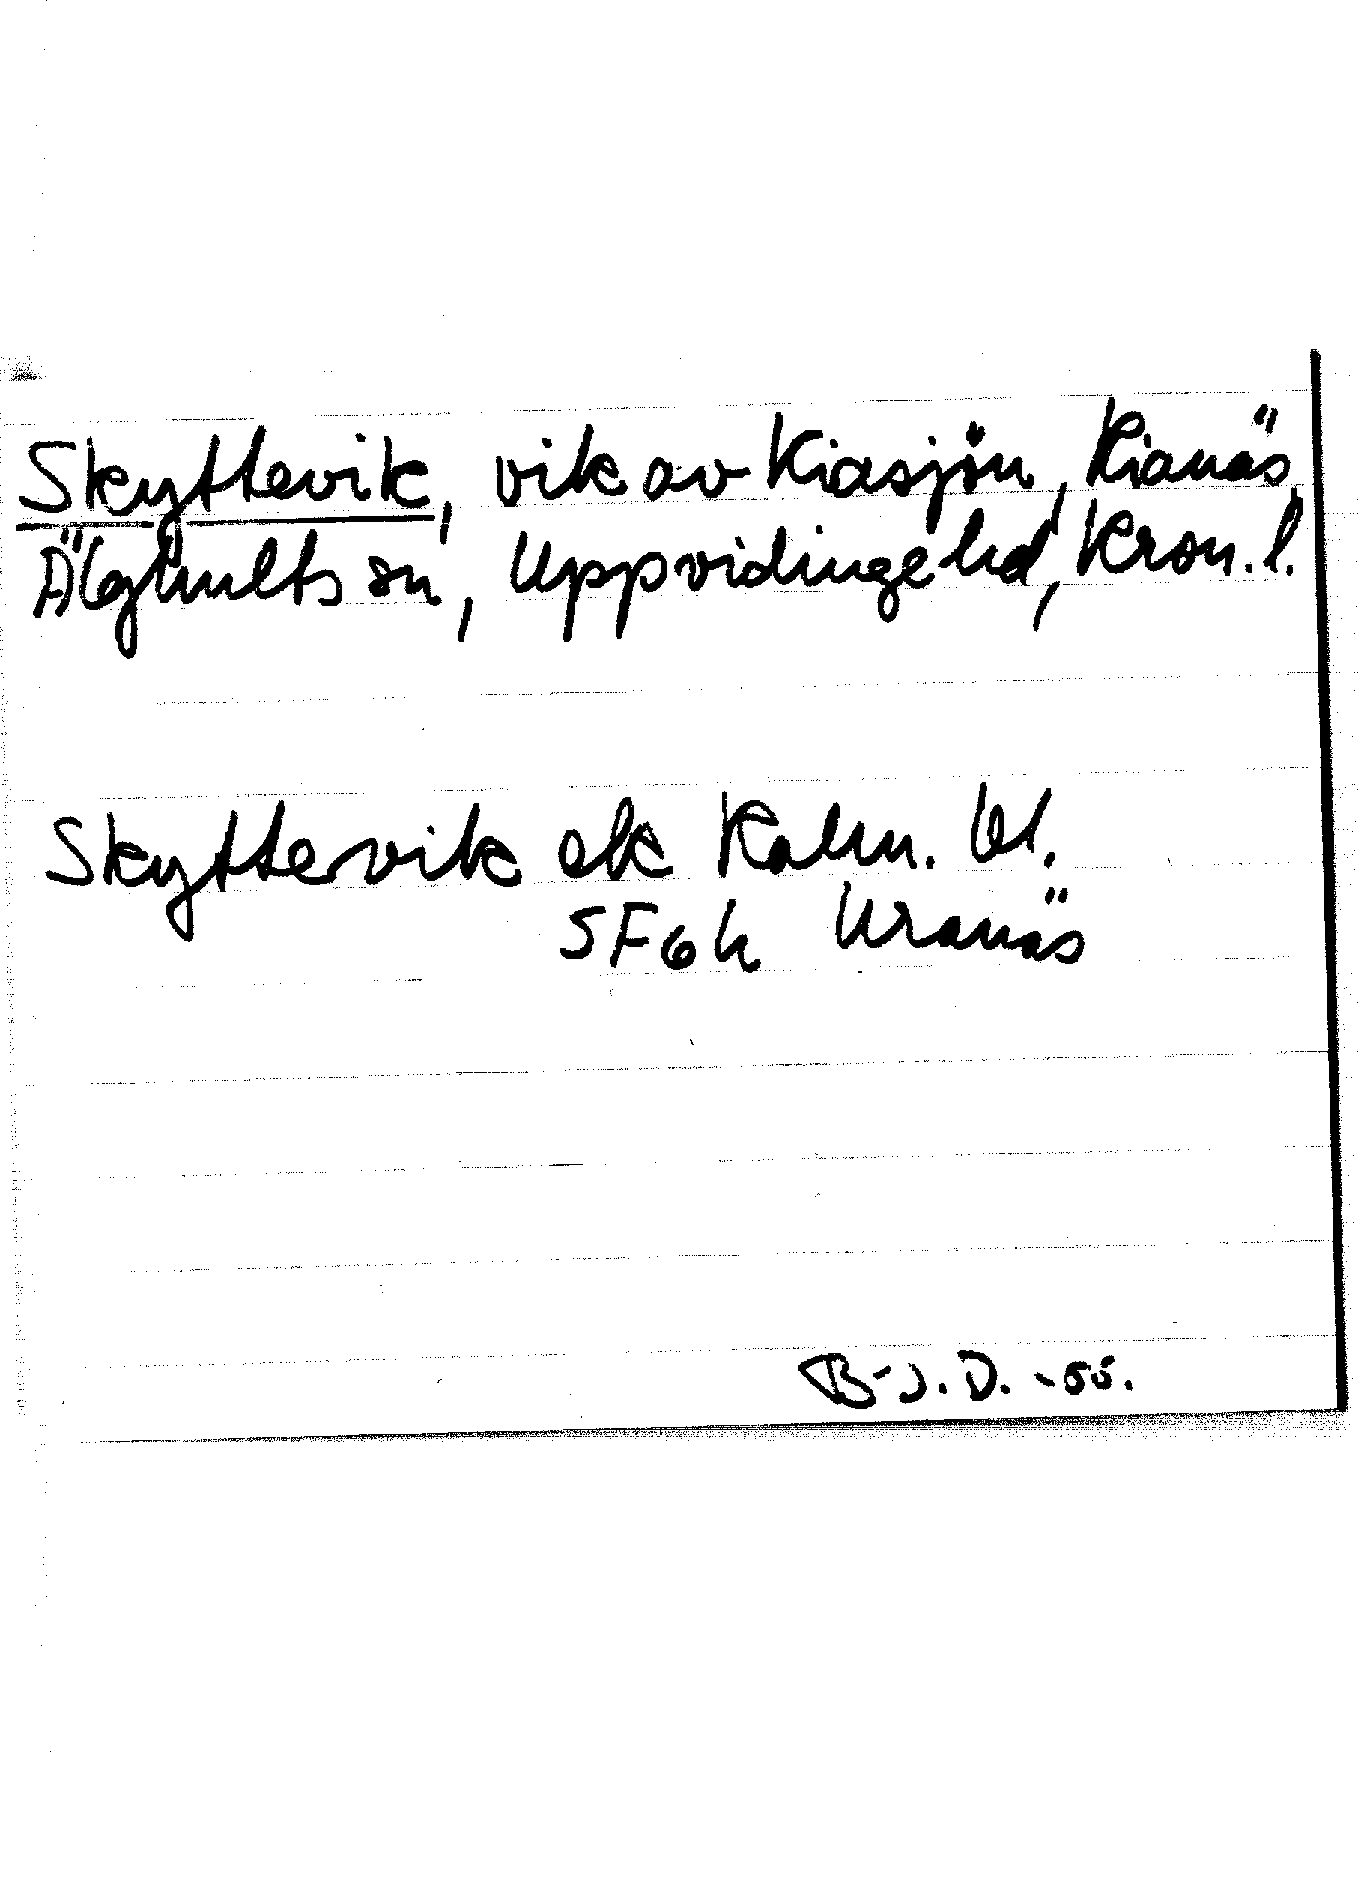 Skyttevik, vik av Kiasjön, Kianäs,
Älghults sn, Uppvidinge hd, Kron. l.
Skyttevik ek Kalm. bl.
5F6h Uranäs
B-J.D. -55.